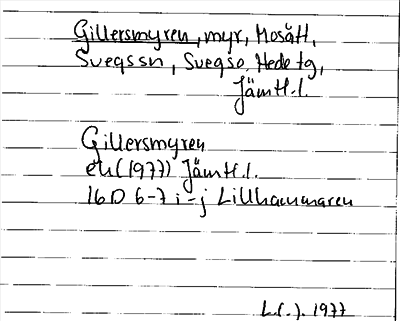 Gillersmyren, myr, Mosätt,
Svegssn, Svegso, Hede tg,
Jämtl.l.
Gillersmyren
ek (1977) Jämtl.l.
16D 6-7 i-j Lillhammaren
L(.). 1977